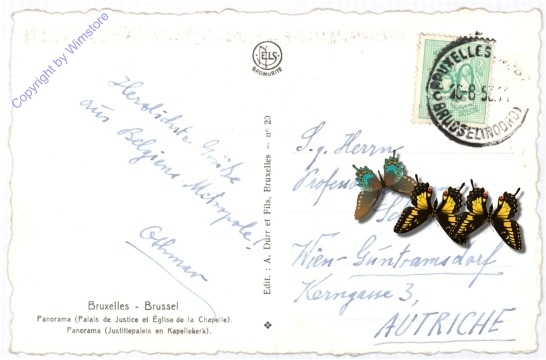 Copyright by Wimstore
NELS
BROMURITE
BRUXELLES
BRUSSEL (NOORD)
Herzlichste Grüße
aus Belgiens Metropole!
Othmar
Bruxelles - Brussel
Panorama (Palais de Justice et Église de la Chapelle).
Panorama (Justitiepaleis en Kapellekerk).
Edit.: A. Dürr et Fils, Bruxelles — n° 23
S.g. Herrn
Wien-Guntramsdorf
Kerngasse 3,
AUTRICHE